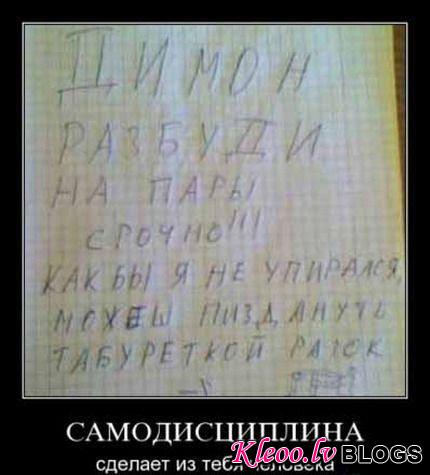 ДИМОН
РАЗБУДИ
НА ПАРЫ
СРОЧНО!!!
КАК БЫ Я НЕ УПИРАЛСЯ,
МОЖЕШ ПИЗДАНУТЬ
ТАБУРЕТКОЙ РАЗОК
САМОДИСЦИПЛИНА
Kleoo.lv BLOGS
сделает из тебя человека